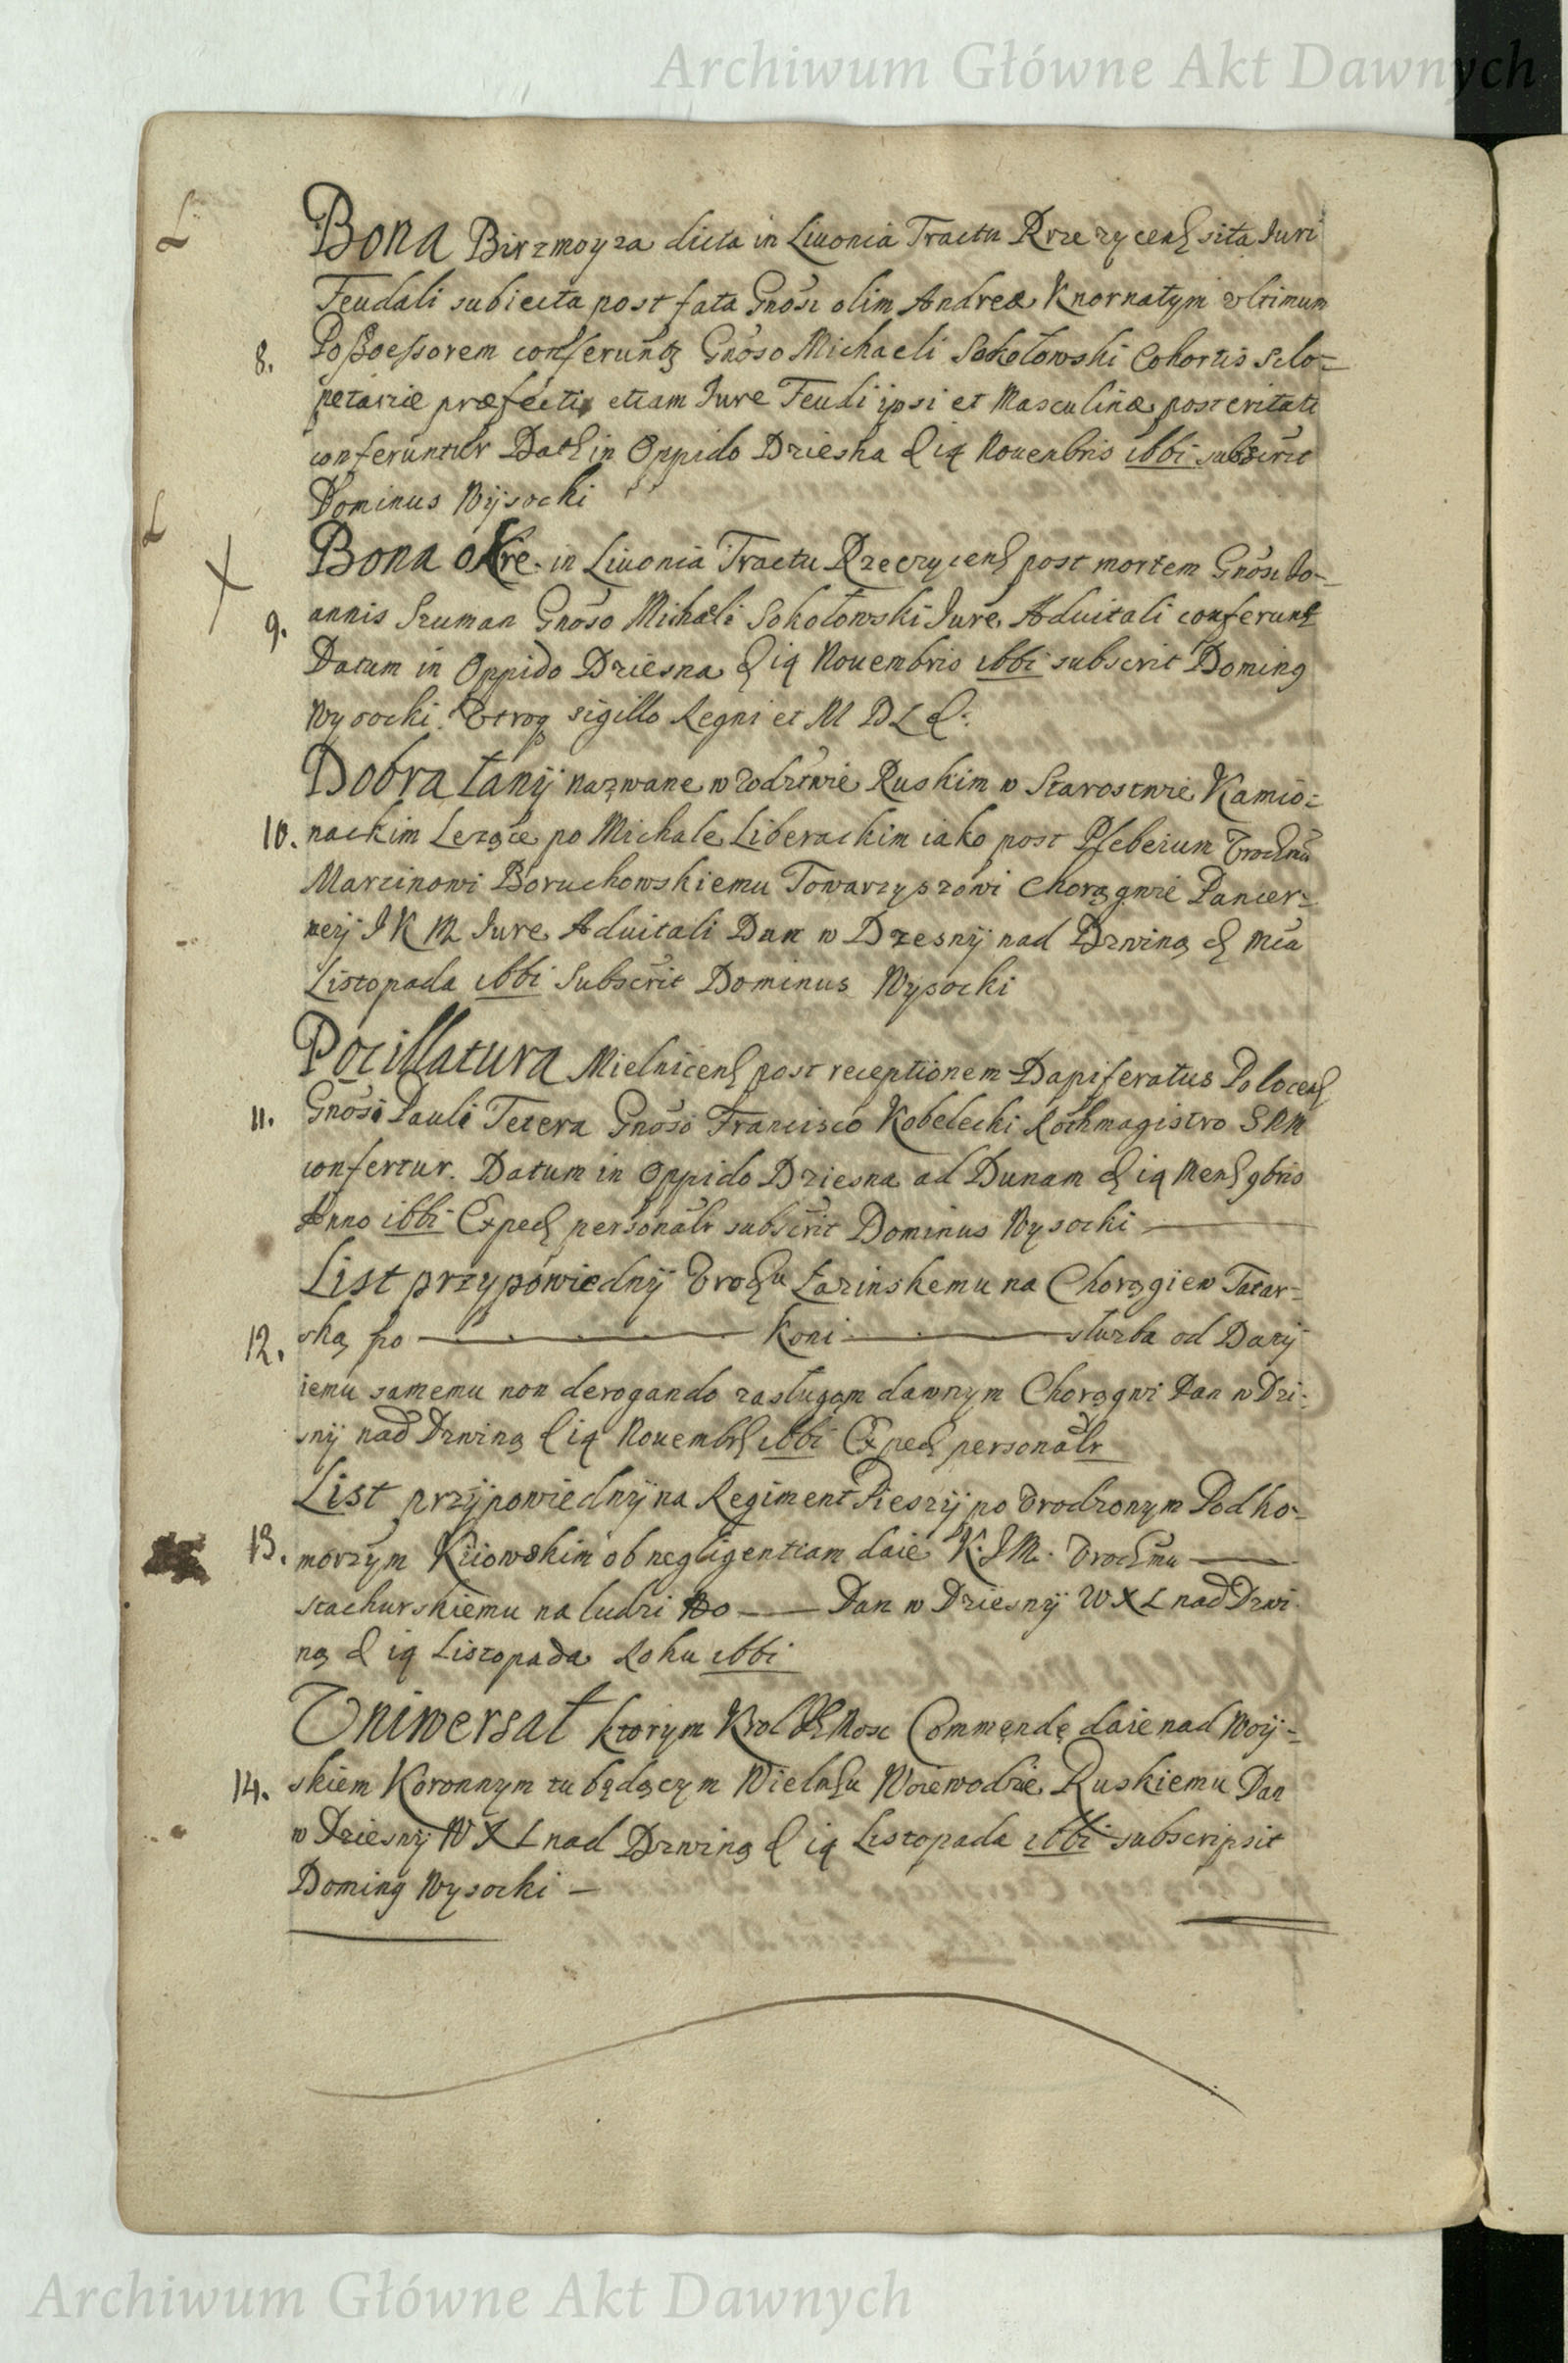 Archiwum Główne Akt Dawnych
L
Bona Birzmoyza dicta in Liuonia Tractu Rzezycens sita Juri
Feudali subiecta post fata Gnosi olim Andreæ Knornatym vltimum
8. Possessorem conferunt Gnoso Michaeli Sokołowski Cohortis Sclo=
petariæ præfecti etiam Jure Feudi ipsi et Masculinæ posteritati
conferuntur Dat in Oppido Driesna d 19 Nouenbris 1661 subscrit
Dominus Wysocki
L
X
Bona okre in Liuonia Tractu Rzeczycens post mortem Gnosi Jo=
9. annis Szuman Gnoso Michæli Sokołowski Jure Aduitali conferunt
Datum in Oppido Dziesna d 19 Nouembris 1661 subscrit Doming
Wysocki Vtroq sigillo Regni et M D L
Dobra Łany nazwane w Wodztwie Ruskim w Starostwie Kamio=
10. nackim Lezące po Michale Liberackim iako post Plebeium
Marcinowi Boruchowskiemu Towarzyszowi Chorągwie Pancer=
neÿ J K M Jure Aduitali Dan w Dzesnÿ nad Dzwiną d Mca
Listopada 1661 Subscrit Dominus Wysocki
Pocillatura Mielnicens post receptionem Dapiferatus Polocens
11. Gnosi Pauli Tetera Gnoso Francisco Kobelecki Rothmagistro SRM
confertur. Datum in Oppido Dziesna ad Dunam d 19 Mens 9bris
Anno 1661 Exped personalr subscrit Dominus Wysocki
List przypowiednÿ Vrodu Łazinskemu na Chorągiew Tatar=
12. ską po koni służba od Datÿ
iemu samemu non derogando zasługom dawnym Chorągwi Dan w Dzi=
snÿ nad Dzwiną d 19 Nouembr 1661 Exped personalr
List przÿpowiednÿ na Regiment Pieszÿ po Vrodzonym Podko=
13. morzym Kiiowskim ob negligentiam daie K. J M.
Stachurskiemu na ludzi Do Dan w Dziesnÿ W X L nad Dzwi
ną d 19 Listopada Roku 1661
Vniwersał ktorym Krol Mosc Commendę daie nad Woÿ=
14. skiem Koronnym tu będącym Wielmu Woiewodzie Ruskiemu Dan
w Dziesnÿ W X L nad Dzwiną d 19 Listopada 1661 subscripsit
Doming Wysocki
Archiwum Główne Akt Dawnych